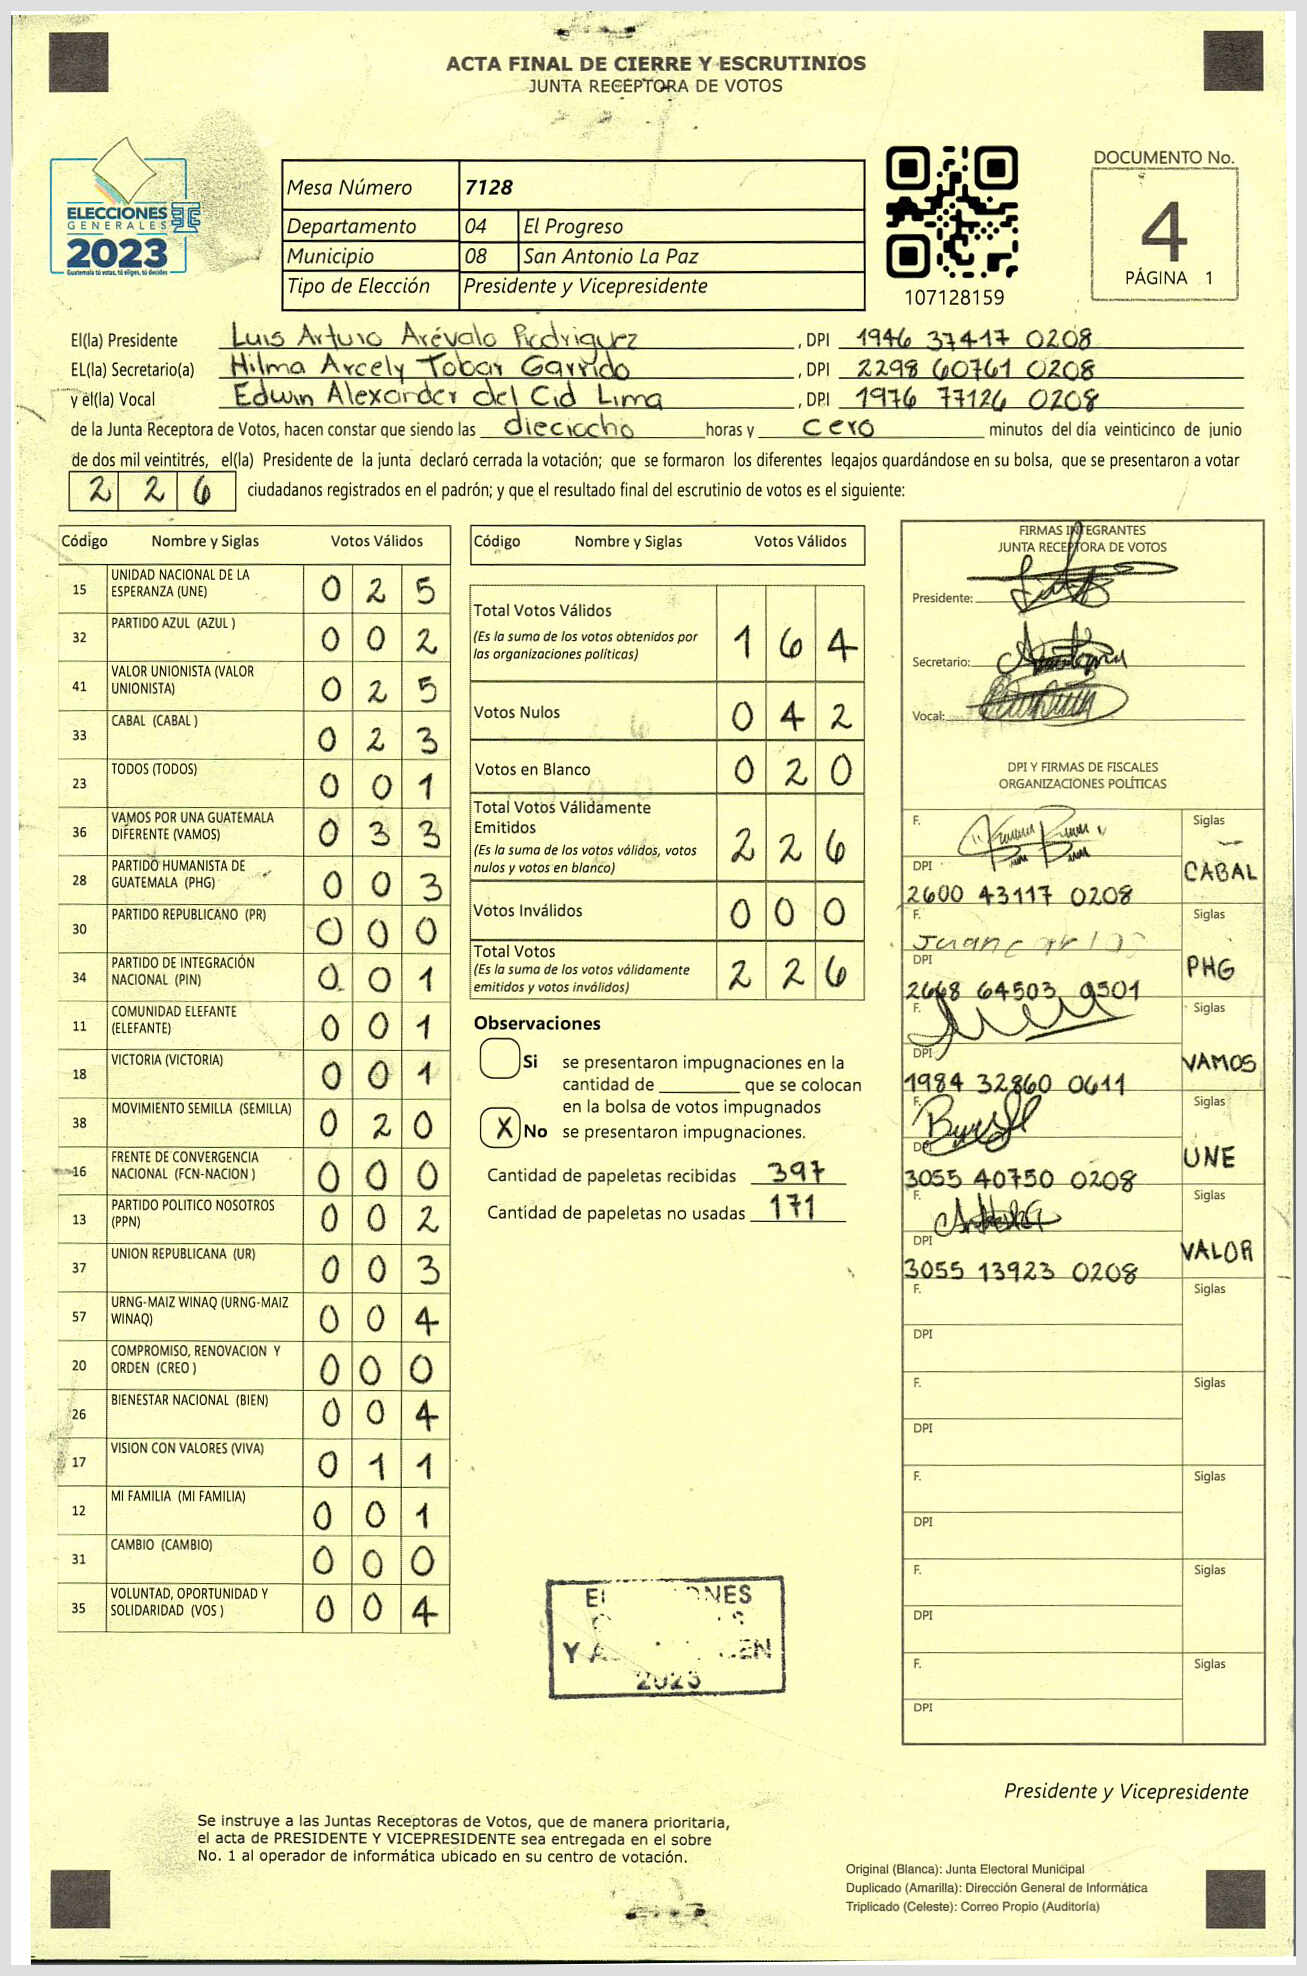 ACTA FINAL DE CIERRE Y ESCRUTINIOS
JUNTA RECEPTORA DE VOTOS
ELECCIONES
GENERALES
2023
Guatemala tú votas, tú eliges, tú decides
Mesa Número 7128
Departamento 04 El Progreso
Municipio 08 San Antonio La Paz
Tipo de Elección Presidente y Vicepresidente
107128159
DOCUMENTO No.
4
PÁGINA 1
El(la) Presidente Luis Arturo Arévalo Rodriguez , DPI 1946 37417 0208
EL(la) Secretario(a) Hilma Arcely Tobar Garrido , DPI 2298 60761 0208
y el(la) Vocal Edwin Alexander del Cid Lima , DPI 1976 77126 0208
de la Junta Receptora de Votos, hacen constar que siendo las dieciocho horas y cero minutos del día veinticinco de junio
de dos mil veintitrés, el(la) Presidente de la junta declaró cerrada la votación; que se formaron los diferentes legajos guardándose en su bolsa, que se presentaron a votar
226 ciudadanos registrados en el padrón; y que el resultado final del escrutinio de votos es el siguiente:
Código Nombre y Siglas Votos Válidos
15 UNIDAD NACIONAL DE LA
ESPERANZA (UNE) 0 2 5
32 PARTIDO AZUL (AZUL ) 0 0 2
41 VALOR UNIONISTA (VALOR
UNIONISTA) 0 2 5
33 CABAL (CABAL ) 0 2 3
23 TODOS (TODOS) 0 0 1
36 VAMOS POR UNA GUATEMALA
DIFERENTE (VAMOS) 0 3 3
28 PARTIDO HUMANISTA DE
GUATEMALA (PHG) 0 0 3
30 PARTIDO REPUBLICANO (PR) 0 0 0
34 PARTIDO DE INTEGRACIÓN
NACIONAL (PIN) 0 0 1
11 COMUNIDAD ELEFANTE
(ELEFANTE) 0 0 1
18 VICTORIA (VICTORIA) 0 0 1
38 MOVIMIENTO SEMILLA (SEMILLA) 0 2 0
16 FRENTE DE CONVERGENCIA
NACIONAL (FCN-NACION ) 0 0 0
13 PARTIDO POLITICO NOSOTROS
(PPN) 0 0 2
37 UNION REPUBLICANA (UR) 0 0 3
57 URNG-MAIZ WINAQ (URNG-MAIZ
WINAQ) 0 0 4
20 COMPROMISO, RENOVACION Y
ORDEN (CREO ) 0 0 0
26 BIENESTAR NACIONAL (BIEN) 0 0 4
17 VISION CON VALORES (VIVA) 0 1 1
12 MI FAMILIA (MI FAMILIA) 0 0 1
31 CAMBIO (CAMBIO) 0 0 0
35 VOLUNTAD, OPORTUNIDAD Y
SOLIDARIDAD (VOS ) 0 0 4
Código Nombre y Siglas Votos Válidos
Total Votos Válidos
(Es la suma de los votos obtenidos por
las organizaciones políticas) 1 6 4
Votos Nulos 0 4 2
Votos en Blanco 0 2 0
Total Votos Válidamente
Emitidos
(Es la suma de los votos válidos, votos
nulos y votos en blanco) 2 2 6
Votos Inválidos 0 0 0
Total Votos
(Es la suma de los votos válidamente
emitidos y votos inválidos) 2 2 6
Observaciones
Si se presentaron impugnaciones en la
cantidad de que se colocan
en la bolsa de votos impugnados
X No se presentaron impugnaciones.
Cantidad de papeletas recibidas 397
Cantidad de papeletas no usadas 171
2023
FIRMAS INTEGRANTES
JUNTA RECEPTORA DE VOTOS
Presidente:
Secretario:
Vocal:
DPI Y FIRMAS DE FISCALES
ORGANIZACIONES POLÍTICAS
F. Siglas
DPI CABAL
2600 43117 0208
F. Juan Carlos Siglas
DPI PHG
2668 64503 0501
F. Siglas
DPI VAMOS
1984 32860 0611
F. Siglas
DPI UNE
3055 40750 0208
F. Siglas
DPI VALOR
3055 13923 0208
F. Siglas
DPI
F. Siglas
DPI
F. Siglas
DPI
F. Siglas
DPI
F. Siglas
DPI
Presidente y Vicepresidente
Se instruye a las Juntas Receptoras de Votos, que de manera prioritaria,
el acta de PRESIDENTE Y VICEPRESIDENTE sea entregada en el sobre
No. 1 al operador de informática ubicado en su centro de votación.
Original (Blanca): Junta Electoral Municipal
Duplicado (Amarilla): Dirección General de Informática
Triplicado (Celeste): Correo Propio (Auditoría)